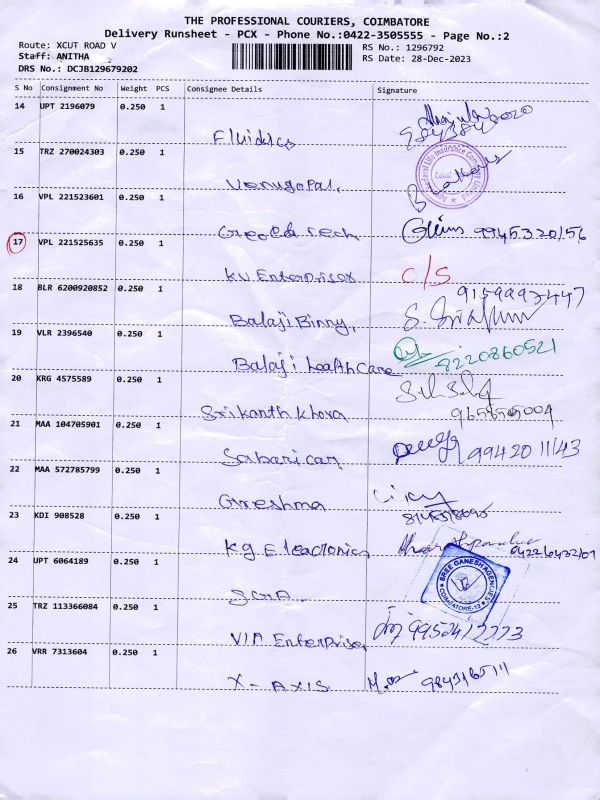 THE PROFESSIONAL COURIERS, COIMBATORE
Delivery Runsheet - PCX - Phone No.:0422-3505555 - Page No.:2
Route: XCUT ROAD V
RS No.: 1296792
Staff: ANITHA
RS Date: 28-Dec-2023
DRS No.: DCJB129679202
S No Consignment No Weight PCS Consignee Details Signature
14 UPT 2196079 0.250 1
Fluidics
15 TRZ 270024303 0.250 1
Venugopal,
16 VPL 221523601 0.250 1
9945320156
17 VPL 221525635 0.250 1
KV Enterprises C/S
18 BLR 6200920852 0.250 1
9159993447
Balaji Binny,
19 VLR 2396540 0.250 1
Balaji health care 8220860521
20 KRG 4575589 0.250 1
Srikanth Khora
21 MAA 104705901 0.250 1
9942011143
22 MAA 572785799 0.250 1
Greeshma
23 KDI 908528 0.250 1
Kg Electronics
24 UPT 6064189 0.250 1
SREE GANESH AGENCIES
COIMBATORE-12
25 TRZ 113366084 0.250 1
VIA Enterprises
26 VRR 7313604 0.250 1
X-AXIS